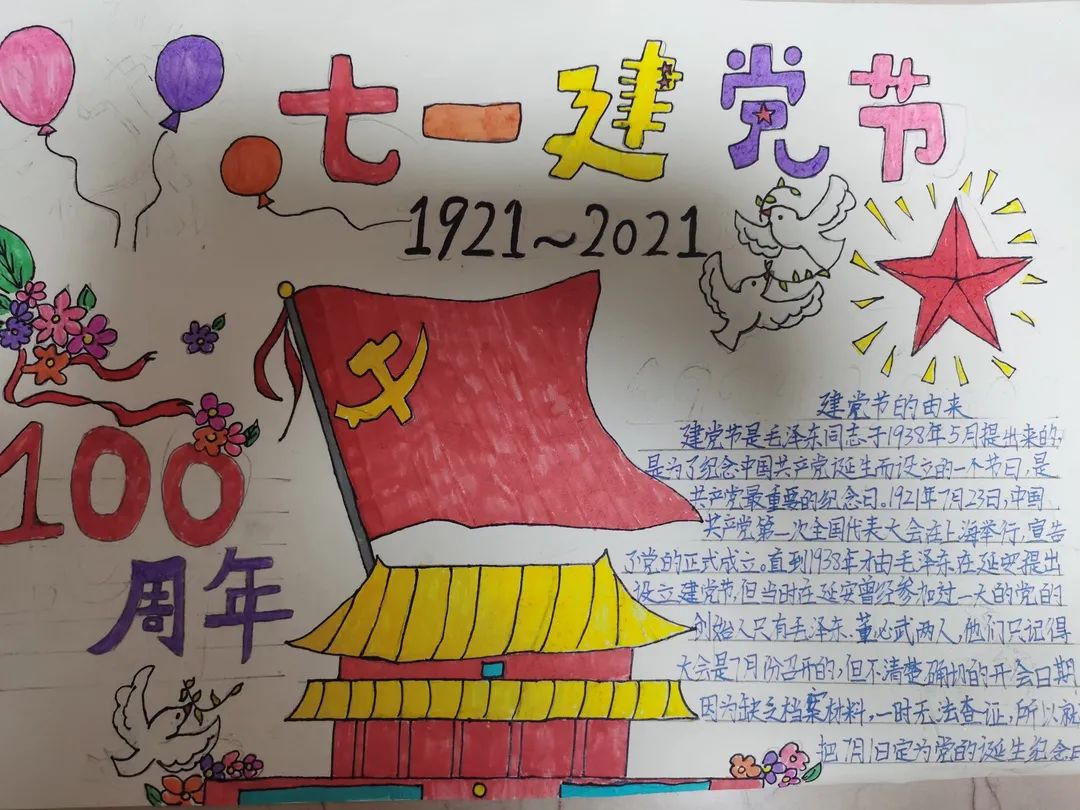 七一建党节
1921~2021
100
周年
建党节的由来
建党节是毛泽东同志于1938年5月提出来的,
是为了纪念中国共产党诞生而设立的一个节日,是
共产党最重要的纪念日。1921年7月23日,中国
共产党第一次全国代表大会在上海举行,宣告
了党的正式成立。直到1938年才由毛泽东在延安提出
设立建党节,但当时在延安曾经参加过一大的党的
创始人只有毛泽东、董必武两人,他们只记得
大会是7月份召开的,但不清楚确切的开会日期,
因为缺乏档案材料,一时无法查证,所以就
把7月1日定为党的诞生纪念日